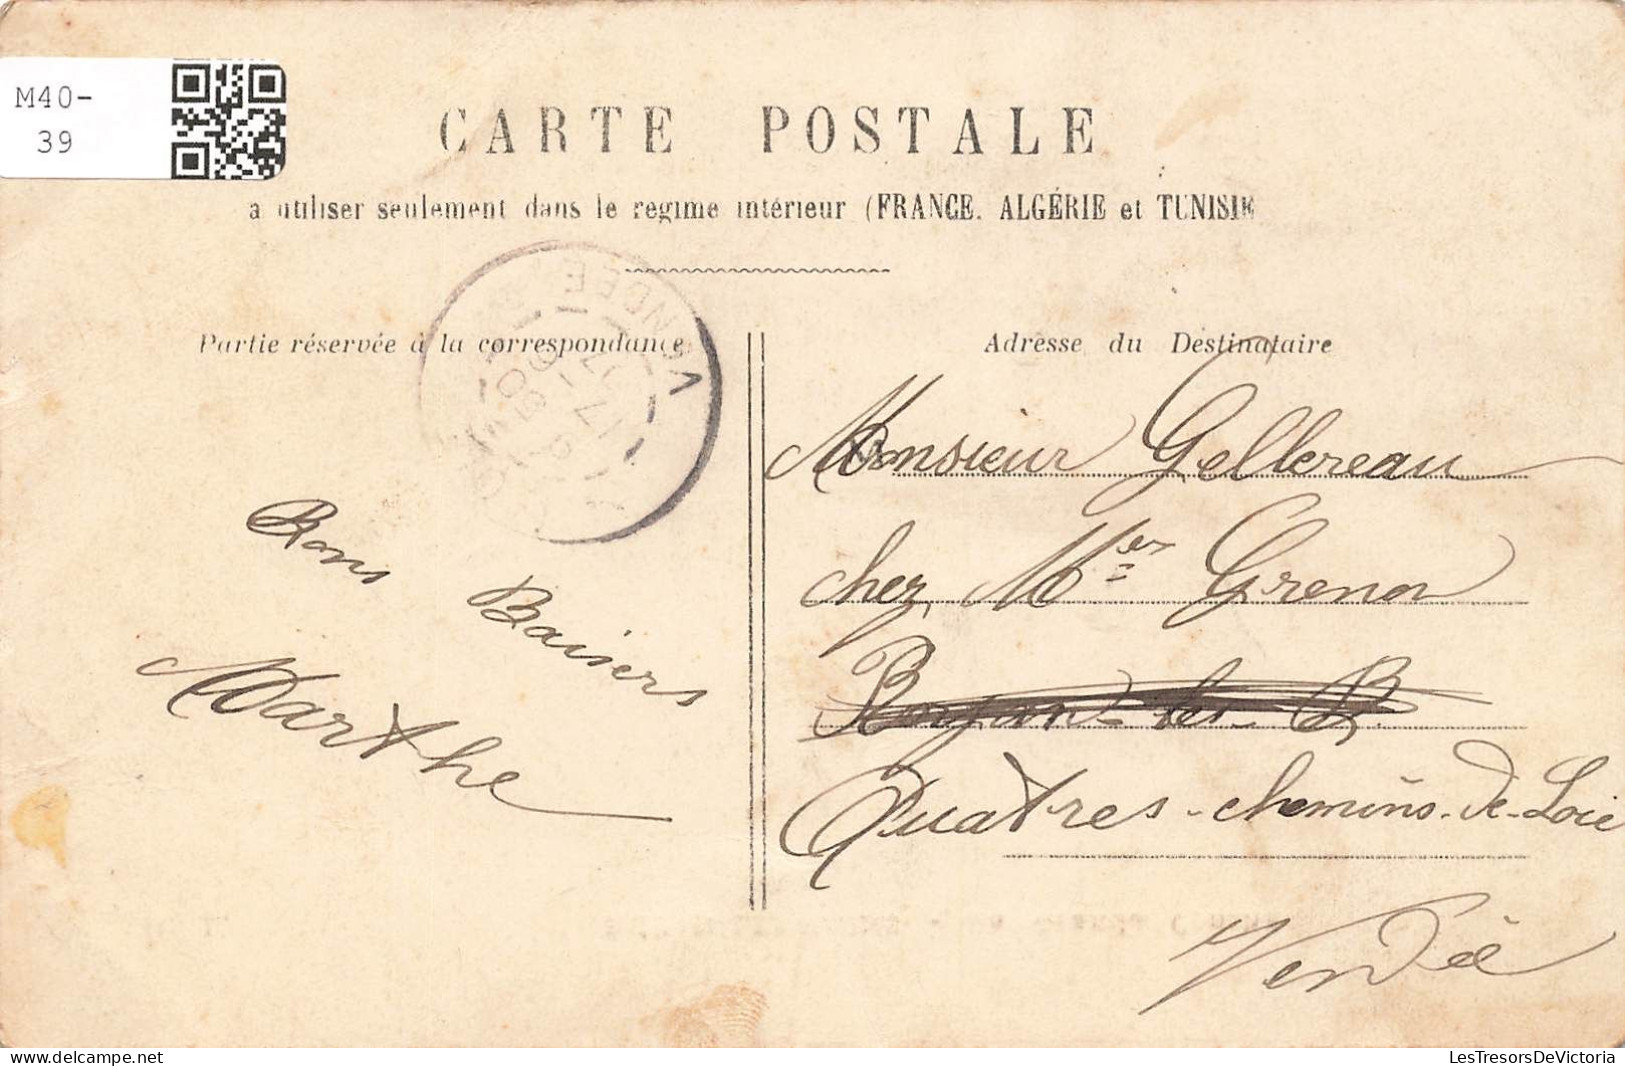 M40-
39
CARTE POSTALE
a utiliser seulement dans le regime intérieur (FRANCE. ALGÉRIE et TUNISIE
Partie réservée à la correspondance
Adresse du Destinataire
VENDÉE
Bons Baisers
Marthe
Monsieur Gellereau
chez Mr Grenon
Quatres-chemins-de-Loie
Vendée
LesTresorsDeVictoria